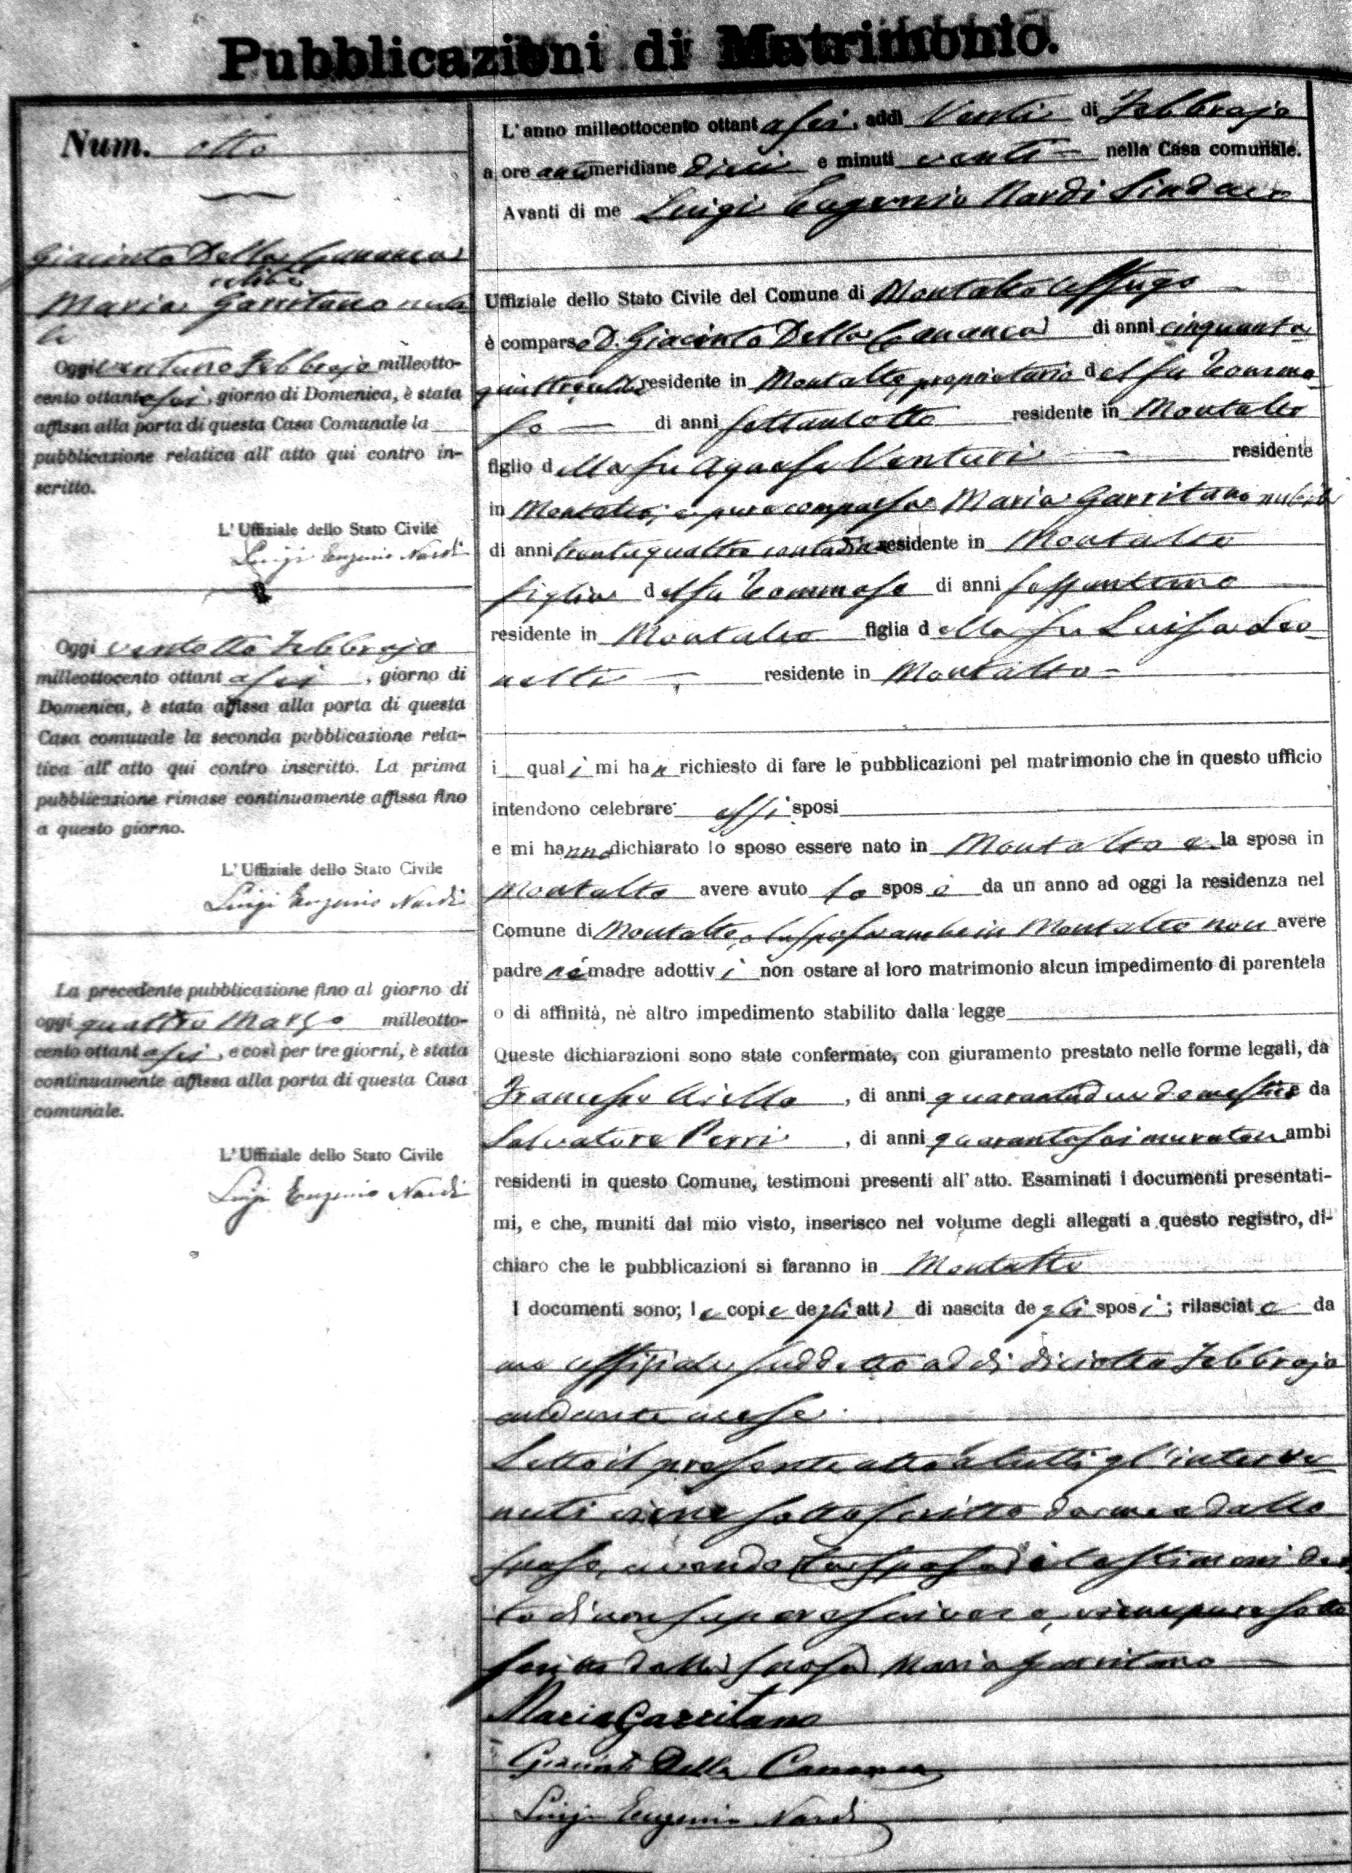 Pubblicazioni di Matrimonio.
Num. otto
Giacinto Della Cananea
celibe
Maria Garritano nubi
le
Oggi ventuno Febbrajo milleotto-
cento ottantasei, giorno di Domenica, è stata
affissa alla porta di questa Casa Comunale la
pubblicazione relatica all' atto qui contro in-
scritto.
L' Uffiziale dello Stato Civile
Luigi Eugenio Nardi
Oggi ventotto Febbrajo
milleottocento ottantasei, giorno di
Domenica, è stata affissa alla porta di questa
Casa comunale la seconda pubblicazione rela-
tica all' atto qui contro inscritto. La prima
pubblicazione rimase continuamente affissa fino
a questo giorno.
L' Uffiziale dello Stato Civile
Luigi Eugenio Nardi
La precedente pubblicazione fino al giorno di
oggi quattro Marzo milleotto-
cento ottantasei, e così per tre giorni, è stata
continuamente affissa alla porta di questa Casa
comunale.
L' Uffiziale dello Stato Civile
Luigi Eugenio Nardi
L' anno milleottocento ottantasei, addì Venti di Febbrajo
a ore antimeridiane dieci e minuti venti nella Casa comunale.
Avanti di me Luigi Eugenio Nardi Sindaco
Uffiziale dello Stato Civile del Comune di Montalto Uffugo
è comparso D. Giacinto Della Cananea di anni cinquanta
quattro celibe residente in Montalto proprietario del fu Tomma
so di anni settantotto residente in Montalto
figlio della fu Agnese Venturi residente
in Montalto, e pure comparsa Maria Garritano nubile
di anni trentaquattro contadina residente in Montalto
figlia del fu Tommaso di anni sessantuno
residente in Montalto figlia della fu Luisa Leo-
netti residente in Montalto
i quali mi han richiesto di fare le pubblicazioni pel matrimonio che in questo ufficio
intendono celebrare essi sposi
e mi hanno dichiarato lo sposo essere nato in Montalto e la sposa in
Montalto avere avuto lo sposo da un anno ad oggi la residenza nel
Comune di Montalto, e la sposa anche in Montalto non avere
padre né madre adottivi non ostare al loro matrimonio alcun impedimento di parentela
o di affinità, nè altro impedimento stabilito dalla legge
Queste dichiarazioni sono state confermate, con giuramento prestato nelle forme legali, da
Francesco Aiello, di anni quarantadue domestico da
Salvatore Perri, di anni quarantasei muratore ambi
residenti in questo Comune, testimoni presenti all' atto. Esaminati i documenti presentati-
mi, e che, muniti dal mio visto, inserisco nel volume degli allegati a questo registro, di-
chiaro che le pubblicazioni si faranno in Montalto
I documenti sono; le copie degli atti di nascita degli sposi; rilasciate da
me Uffiziale suddetto addi diciotto Febbrajo
andante mese.
Letto il presente atto a tutti gl' interve-
nuti viene sottoscritto da me e dallo
sposo, avendo (la sposa) i testimoni det
to di non sapere scrivere, viene pure sotto
scritto dalla sposa Maria Garritano
Maria Garritano
Giacinto Della Cananea
Luigi Eugenio Nardi